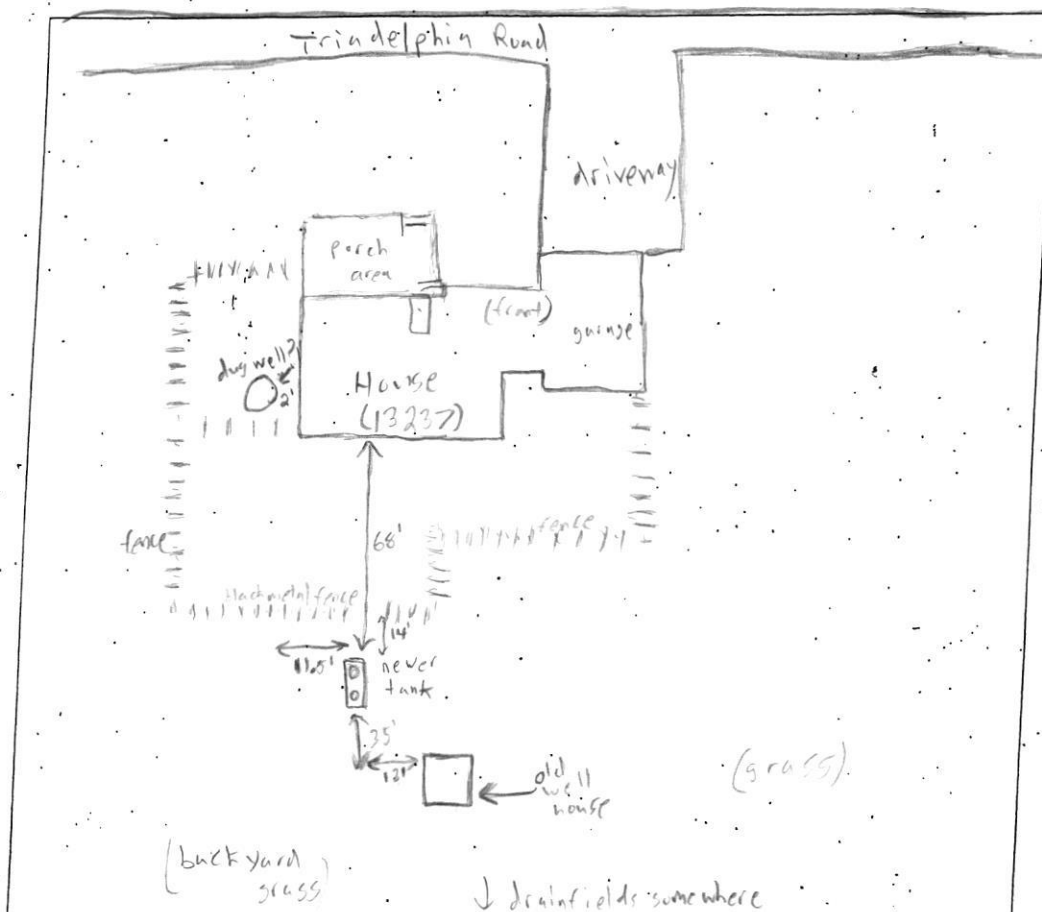 Triadelphia Road
driveway
porch
area
(front)
garage
dug well?
2'
House
(13237)
68'
fence
fence
black metal fence
14'
11.5'
newer
tank
35'
12'
old
well
house
(grass)
(backyard
grass)
↓ drainfields somewhere